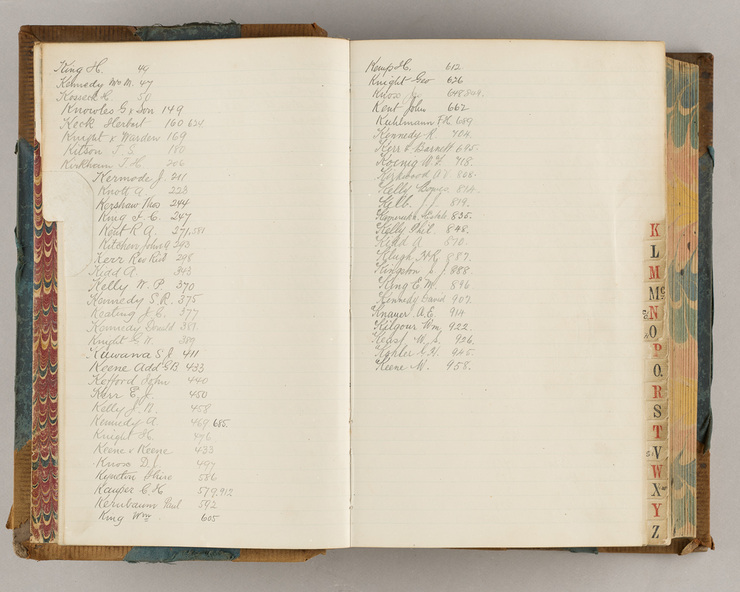 King H. 40
Kennedy Wm M. 47
Kosieck H 50
Knowles G & Son 149
Keck Herbert 160, 624
Knight & Warden 169
Kitson T. S. 180
Kirkham T. H. 206
Kermode J. 211
Knott A. 228
Kershaw Thos 244
King J. C. 247
Kent R A. 271, 581
Kitchen John G 293
Kerr Rev Rich 298
Kidd A. 343
Kelly W. P. 370
Kennedy S. R. 375
Keating J. C. 377
Kennedy Donald 381
Knight G. W. 389
Kuwana S J. 411
Keene Add G B 433
Kefford John 440
Kerr E. J. 450
Kelly J. N. 458
Kennedy A. 469 685
Knight H. 476
Keene & Keene 433
Knox D. J. 497
Kynston 586
Kauper C. H 579, 912
Kernbaum Paul 592
King Wm 605
Kemp H. 612
Knight Geo 626
Knox J. 648, 809
Kent John 662
Kuhlmann F H 689
Kennedy R. 704
Kerr & Barnett 695
Koenig W. F. 718
Kirkwood A.
Kelly 814
Kelb J. 819
835
Kelly Phil. 848
Kidd A. 870
Klugh H R 887
Kingston J. 888
King E. M. 896
Kennedy David 907
Knauer A. E. 914
Kilgour Wm. 922
926
Kohler G H. 945
Keene M. 958
K
L
M
Mc
N
O
P
Q
R
S
T
V
W
X
Y
Z